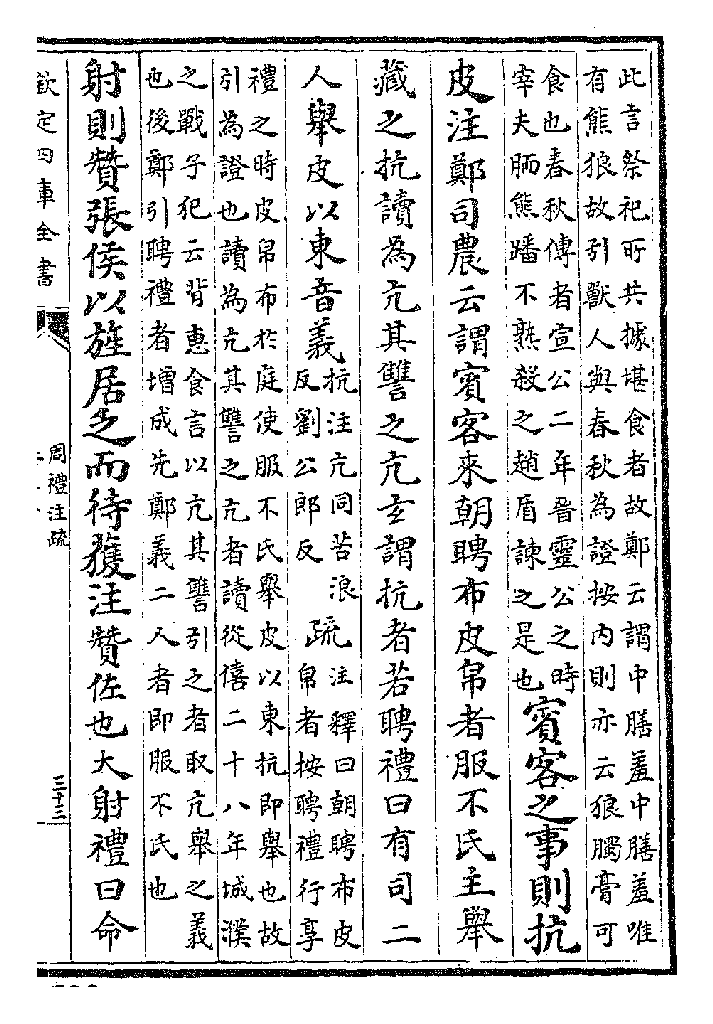 此言祭祀所共據堪食者故鄭云謂中膳羞中膳羞唯
有熊狼故引獸人與春秋為證按內則亦云狼臅膏可
食也春秋傳者宣公二年晉靈公之時
宰夫胹熊蹯不熟殺之趙盾諫之是也
賓客之事則抗
皮注鄭司農云謂賓客來朝聘布皮帛者服不氏主舉
藏之抗讀為亢其讐之亢玄謂抗者若聘禮曰有司二
人舉皮以東音義
抗注亢同苦浪
反劉公郎反
疏
注釋曰朝聘布皮
帛者按聘禮行享
禮之時皮帛布於庭使服不氏舉皮以東抗即舉也故
引為證也讀為亢其讐之亢者讀從僖二十八年城濮
之戰子犯云背惠食言以亢其讐引之者取亢舉之義
也後鄭引聘禮者增成先鄭義二人者即服不氏也
射則贊張侯以旌居乏而待獲注贊佐也大射禮曰命
欽定四庫全書
周禮注疏
三十三